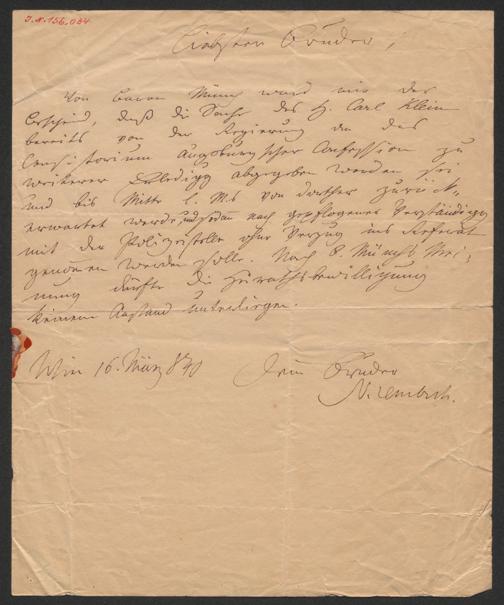 I.N. 156.084
Liebster Bruder!
Von Baron Münch ward mir der
Bescheid, daß die Sache des H. Carl Klein
bereits von der Regierung an das
Consistorium Augsburgscher Confession zu
weiterer Erledigg abgegeben worden sei
und bis Mitte l. Ms von dorther zurück
erwartet werde, und sodann nach gepflogener Verständigg
mit der Polizeistelle ohne Verzug ins Referat
genommen werden solle. Nach B. Münchs Mei-
nung dürfte die Heirathsbewilligung
keinem Anstand unterliegen.
Wien 16. März 840 Dein Bruder
Niembsch.